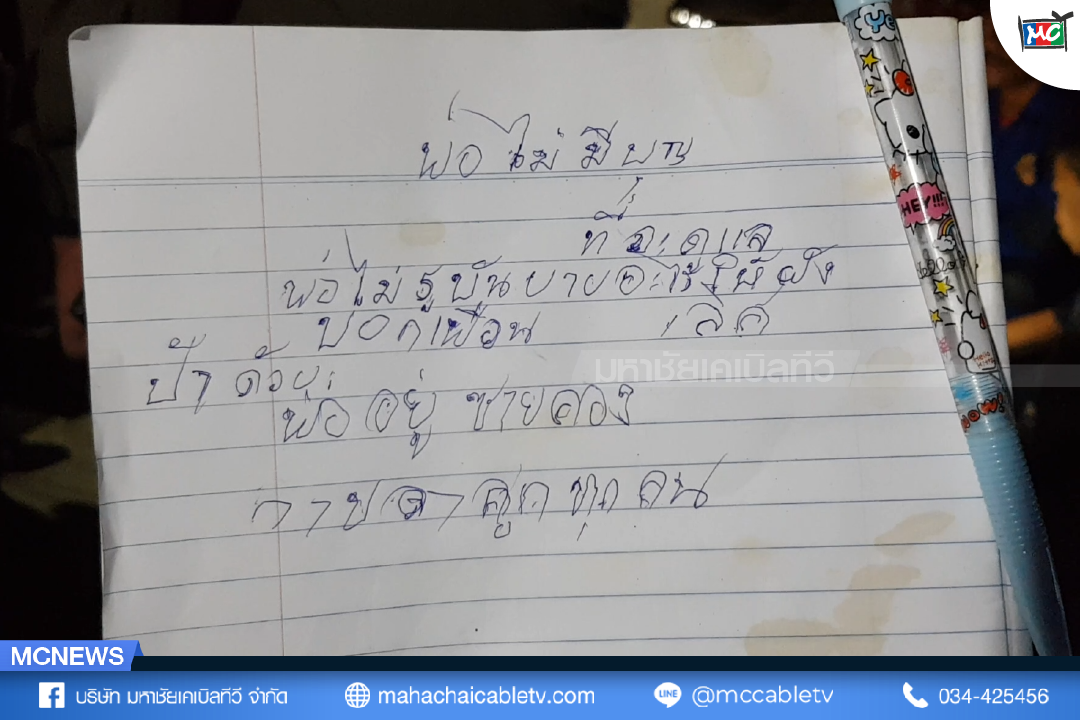 Ye
MC
พ่อไม่มีบุญ
ที่จะดูแล
พ่อไม่รูบันยายอะไรให้ฝัง
บอกเพือน เลิศ
ป๋าด้วย
พ่ออยู่ชายคลอง
กาบลาลูกทุกคน
HEY!!!
มหาชัยเคเบิลทีวี
MCNEWS
บริษัท มหาชัยเคเบิลทีวี จำกัด mahachaicabletv.com LINE @mccabletv 034-425456